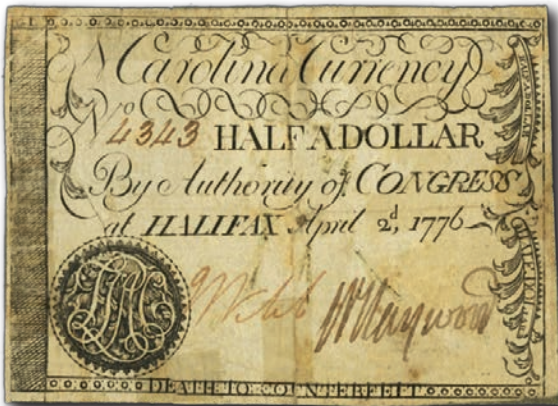 N Carolina Currency
No 4343 HALF A DOLLAR
By Authority of CONGRESS
at HALIFAX April 2d, 1776
W Haywood
HALF A DOLLAR
HALF A DOLLAR
DEATH TO COUNTERFEIT